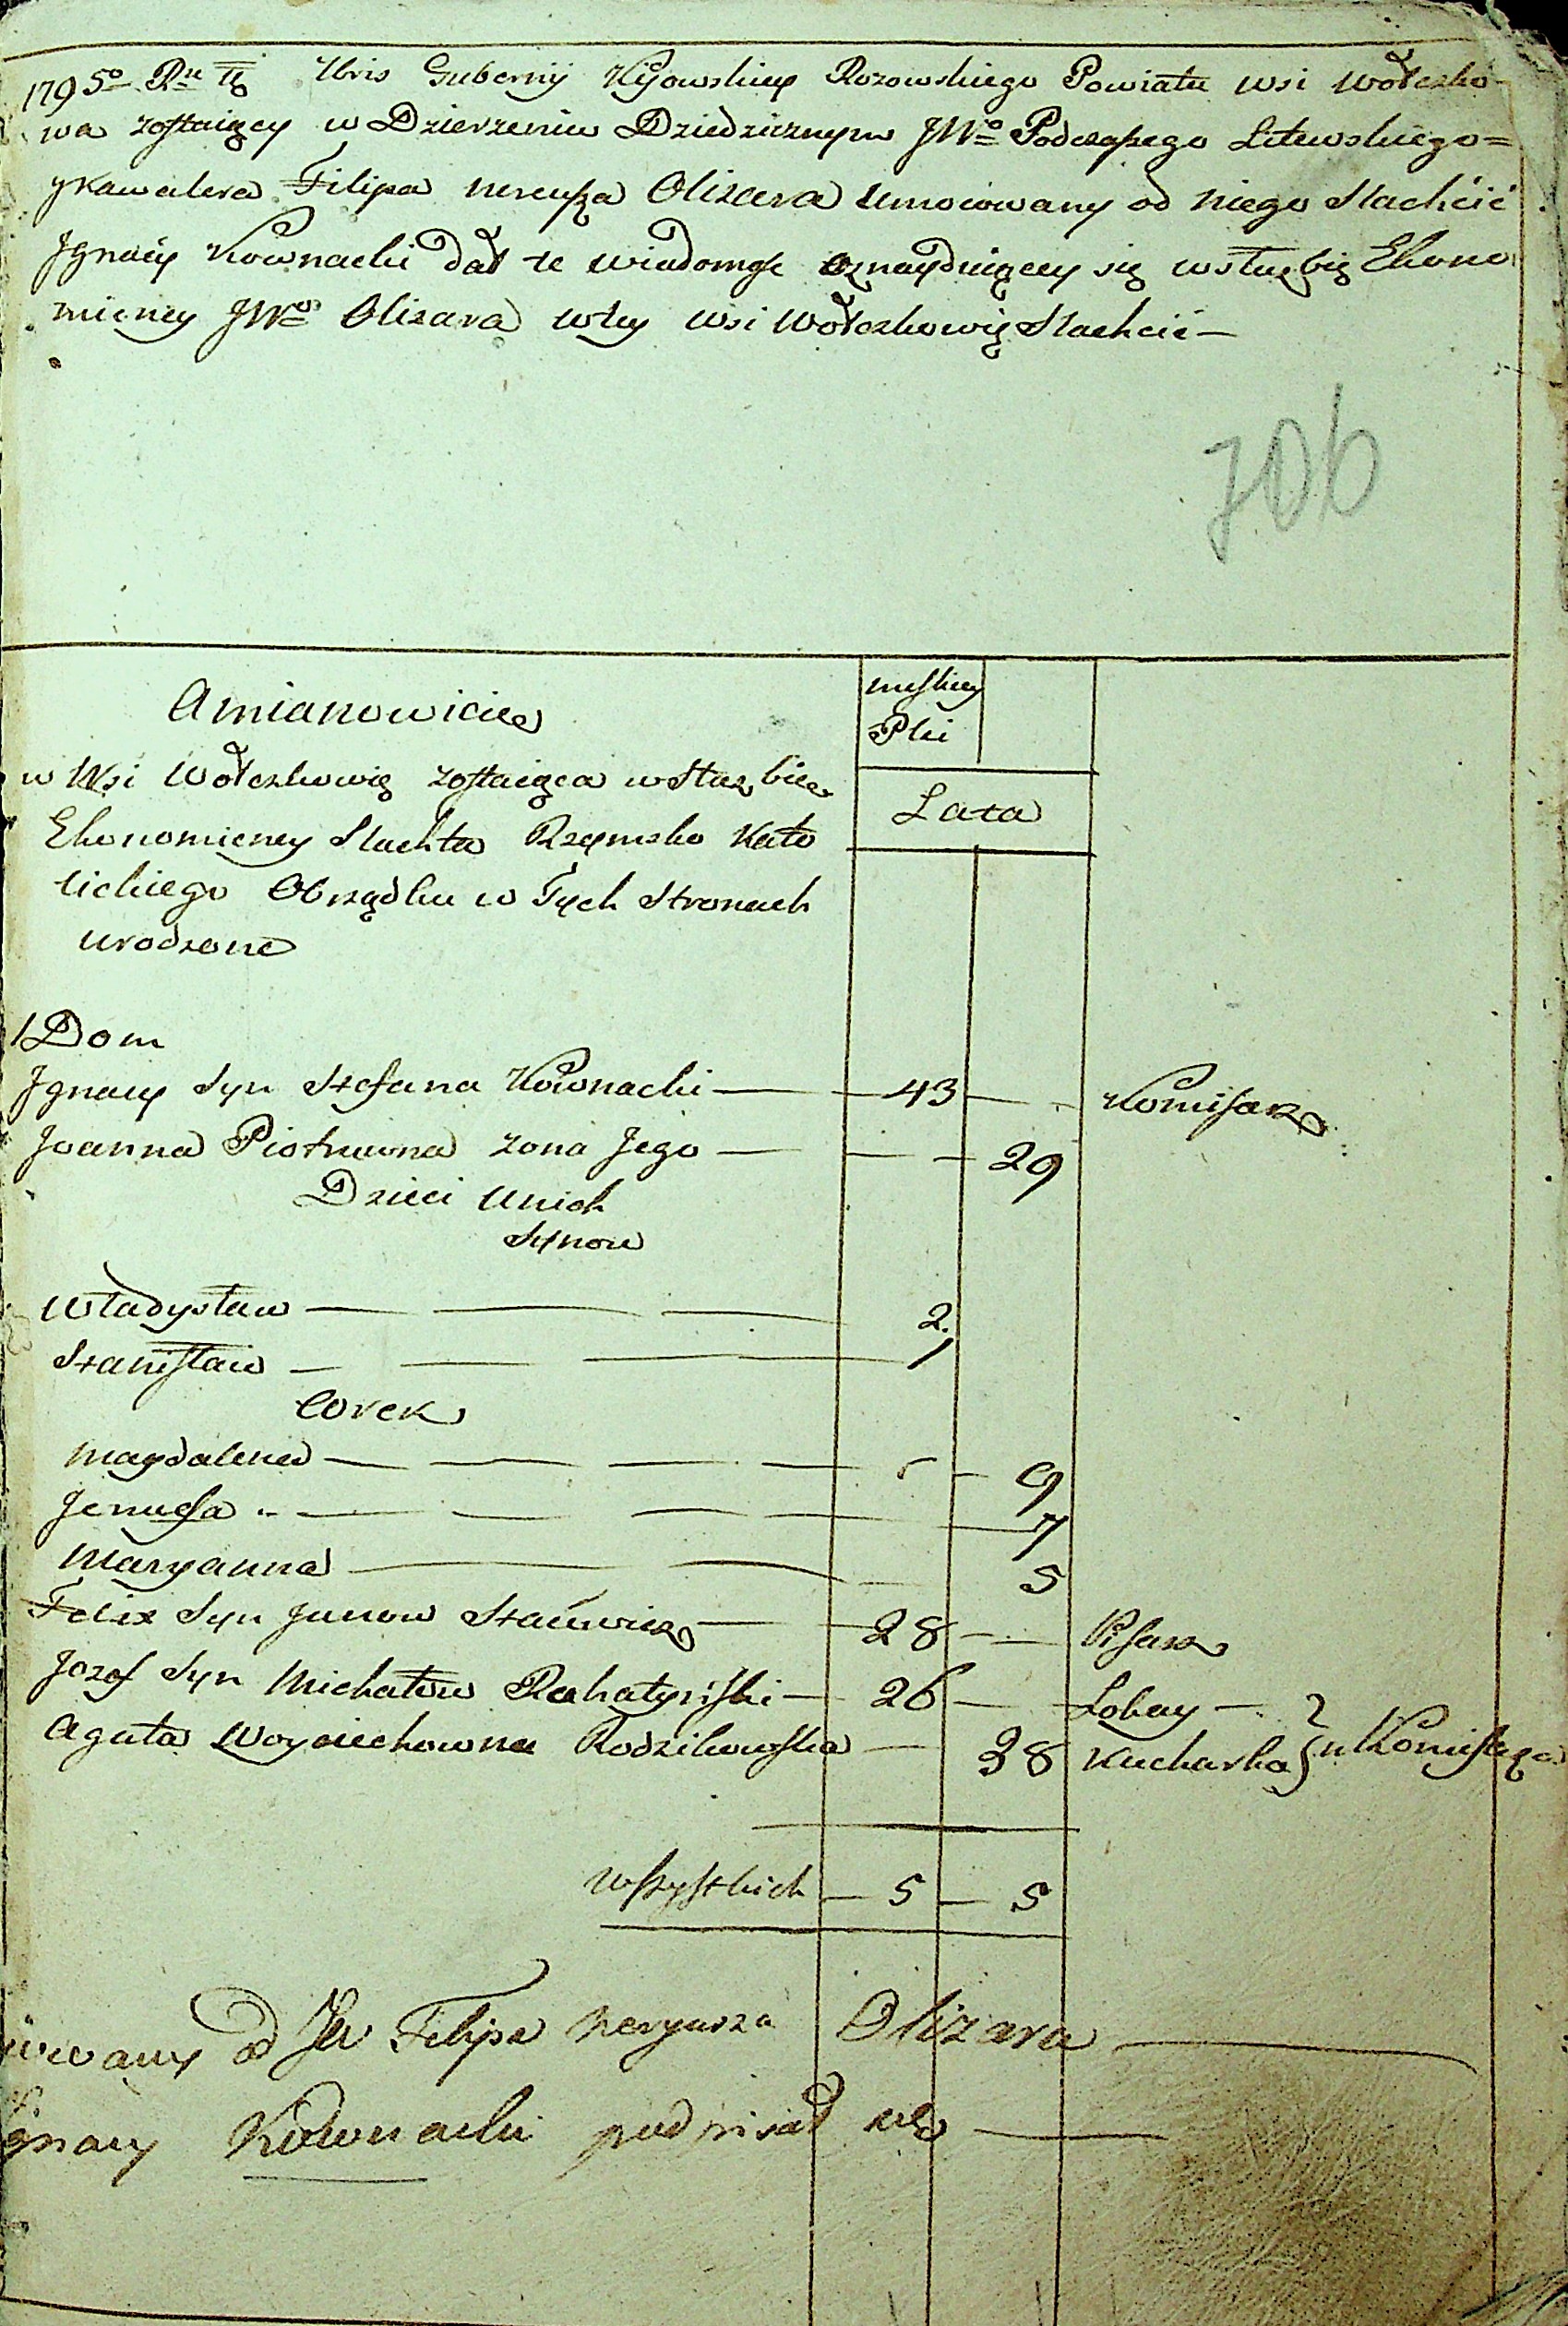 1795º Ru Xbris Gubernij Kijowskiey Rozowskiego Powiatu wsi Wołczko-
wa zostaiącey w Dzierzeniu Dziedzicznym JWº Podczaszego Litewskiego=
y kawalera Filipa Nereusza Olizara Umocowany od niego Slachcić
Jgnacy Kownacki dał te wiadomośc o znayduiącey się w służbię Ekono
miczney JWº Olizara w tey wsi Wołczkowię Slachcić —
706
Amianowicie
w Wsi Wołczkowię zostaiąca w Służbie
Ekonomiczney Slachta Rzymsko Kato
lickiego Obrządku w Tych Stronach
urodzone
męskiey
Płci
Lata
1 Dom
Jgnacy Syn Stefana Kownacki — 43 — Komisarz
Joanna Piotrowna zona Jego — — 29
Dzieci Unich
Synow
Władysław — — — 2.
Stanisław — — — 1
Corek
Magdalena — — — — 9
— — — 7
Maryanna — — 5
Felix Syn Janow — 28 — Pisarz
Jozef Syn Michałow Rohatyński — 26 — Lokay —
Agata Woyciechowna Rodzikowska — 38 Kucharka } u Komisarza
Wszystkich — 5 — 5
od JW Filipa Neryusza Olizara —
Kownacki podpisał się —